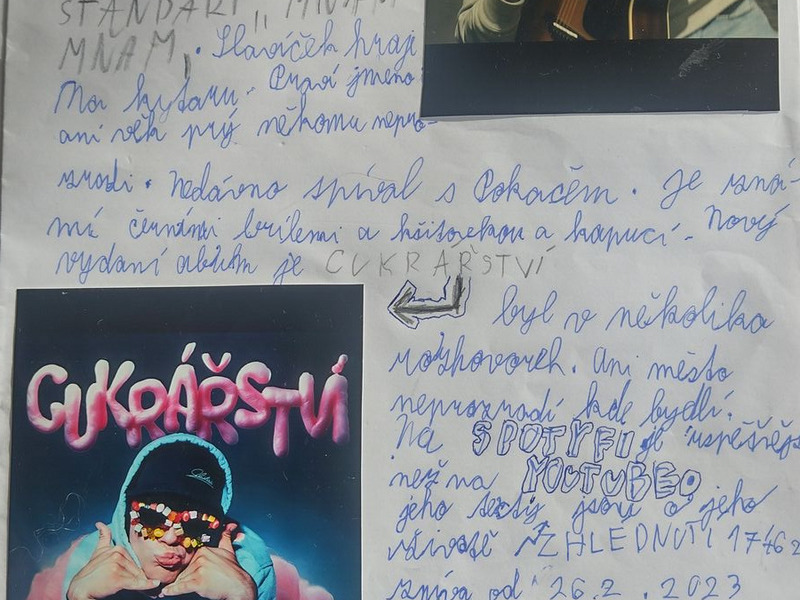 STANDART „ MŇAM
MŇAM". Slavíček hraje
Na kytaru. Pravé jméno
ani věk prý někomu nepro-
zradí. Nedávno spíval s Pokáčem. Je zná-
mí černími brílemi a kšiltovkou a kapucí. Nový
vydaní album je CUKRÁŘSTVÍ
byl v několika
rozhovorech. Ani město
neprozradí kde bydlí.
Na SPOTYFI je úspěšněj
než na YOUTUBEO
jeho texty jsou o jeho
životě ZHLÉDNUTÍ 1746
zpívá od 26.2.2023
CUKRÁŘSTVÍ